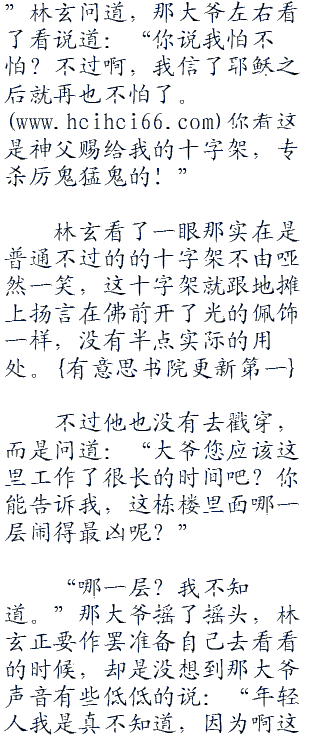 ”林玄问道，那大爷左右看
了看说道：“你说我怕不
怕？不过啊，我信了耶稣之
后就再也不怕了。
(www.hcihci66.com)你看这
是神父赐给我的十字架，专
杀厉鬼猛鬼的！”
林玄看了一眼那实在是
普通不过的的十字架不由哑
然一笑，这十字架就跟地摊
上扬言在佛前开了光的佩饰
一样，没有半点实际的用
处。{有意思书院更新第一}
不过他也没有去戳穿，
而是问道：“大爷您应该这
里工作了很长的时间吧？你
能告诉我，这栋楼里面哪一
层闹得最凶呢？”
“哪一层？我不知
道。”那大爷摇了摇头，林
玄正要作罢准备自己去看看
的时候，却是没想到那大爷
声音有些低低的说：“年轻
人我是真不知道，因为啊这